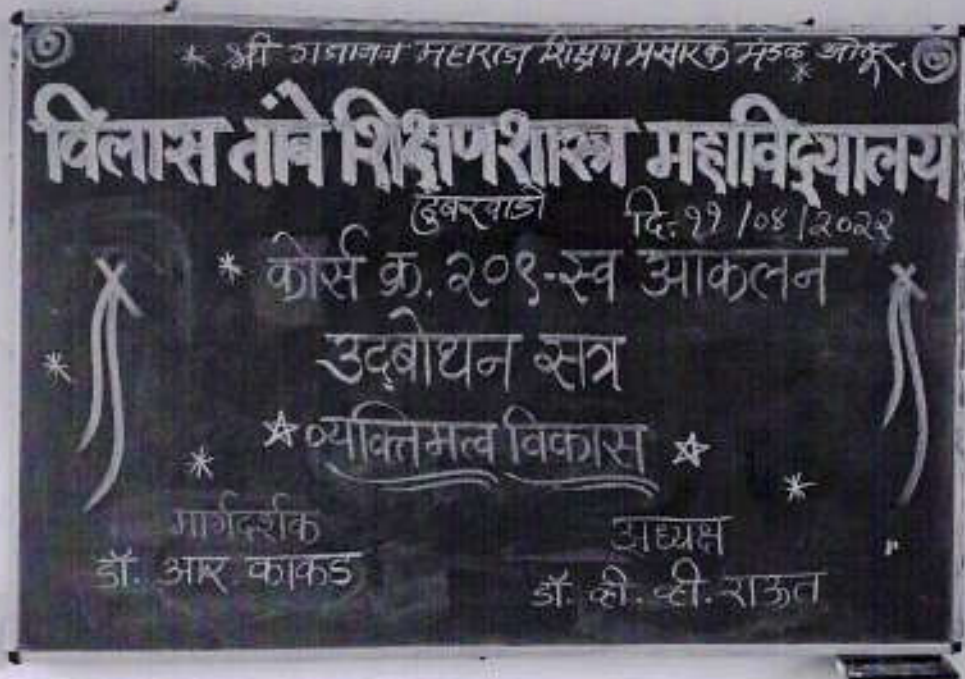 श्री गजानन महाराज शिक्षण प्रसारक मंडळ ओतूर.
विलास तांबे शिक्षणशास्त्र महाविद्यालय
डुंबरवाडी
दि. ११/०४/२०२२
कोर्स क्र. २०९-स्व आकलन
उद्‌बोधन सत्र
व्यक्तिमत्व विकास
मार्गदर्शक
डॉ. आर काकड
अध्यक्ष
डॉ. व्ही. व्ही. राऊत